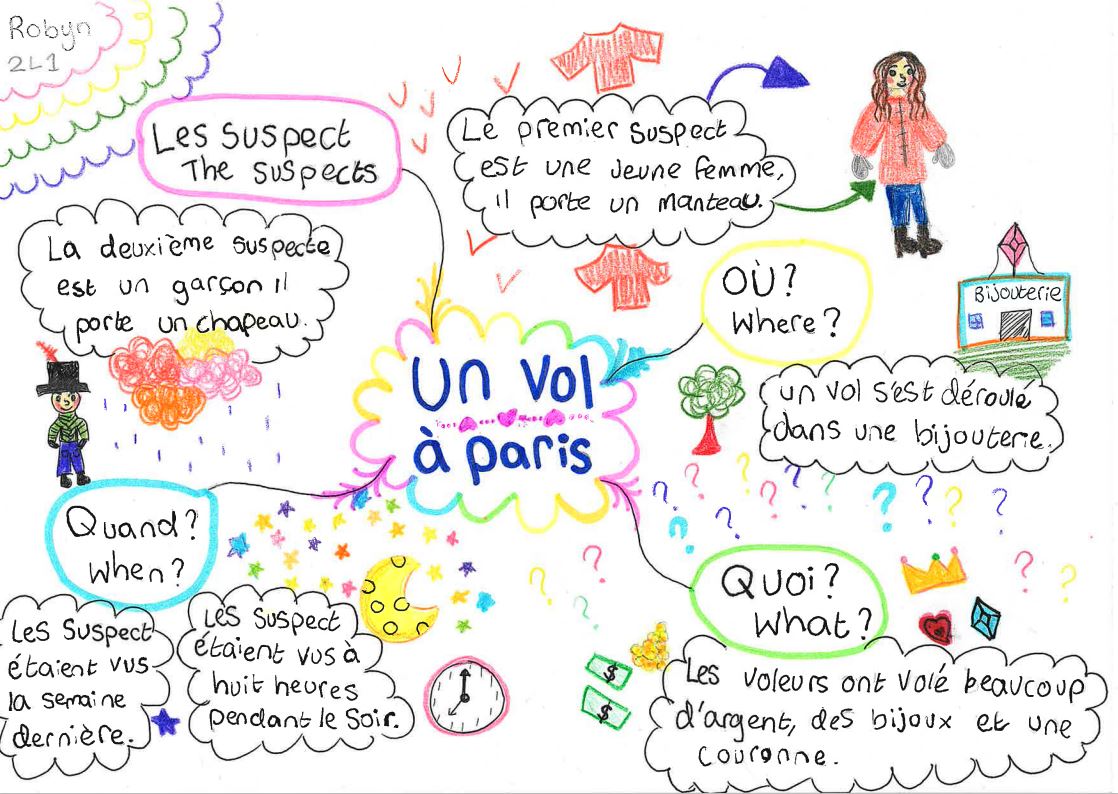 Robyn
2L1
Les suspect
The suspects
Le premier suspect
est une jeune femme,
il porte un manteau.
La deuxième suspecte
est un garçon il
porte un chapeau.
Où?
Where?
Bijouterie
un vol s'est déroulé
dans une bijouterie.
Un vol
à paris
Quand?
When?
Les suspect
étaient vus
la semaine
dernière.
Les suspect
étaient vus à
huit heures
pendant le soir.
Quoi?
What?
$
$
Les voleurs ont volé beaucoup
d'argent, des bijoux et une
couronne.